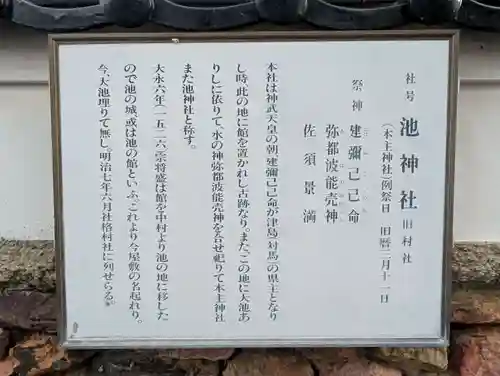 社号 池神社 旧村社
（本主神社）例祭日 旧暦三月十一日
祭神 建彌己己命
弥都波能売神
佐須景満
本社は神武天皇の朝、建彌己己命が津島（対馬）の県主となり
し時、此の地に館を置かれし古跡なり。また、この地に大池あ
りしに依りて、水の神弥都波能売神を合せ祀りて本主神社
また池神社と称す。
大永六年（一五二六）宗将盛は館を中村より池の地に移した
ので池の城、或は池の館といふ、これより今屋敷の名起れり。
今、大池埋りて無し。明治七年六月社格村社に列せらる。